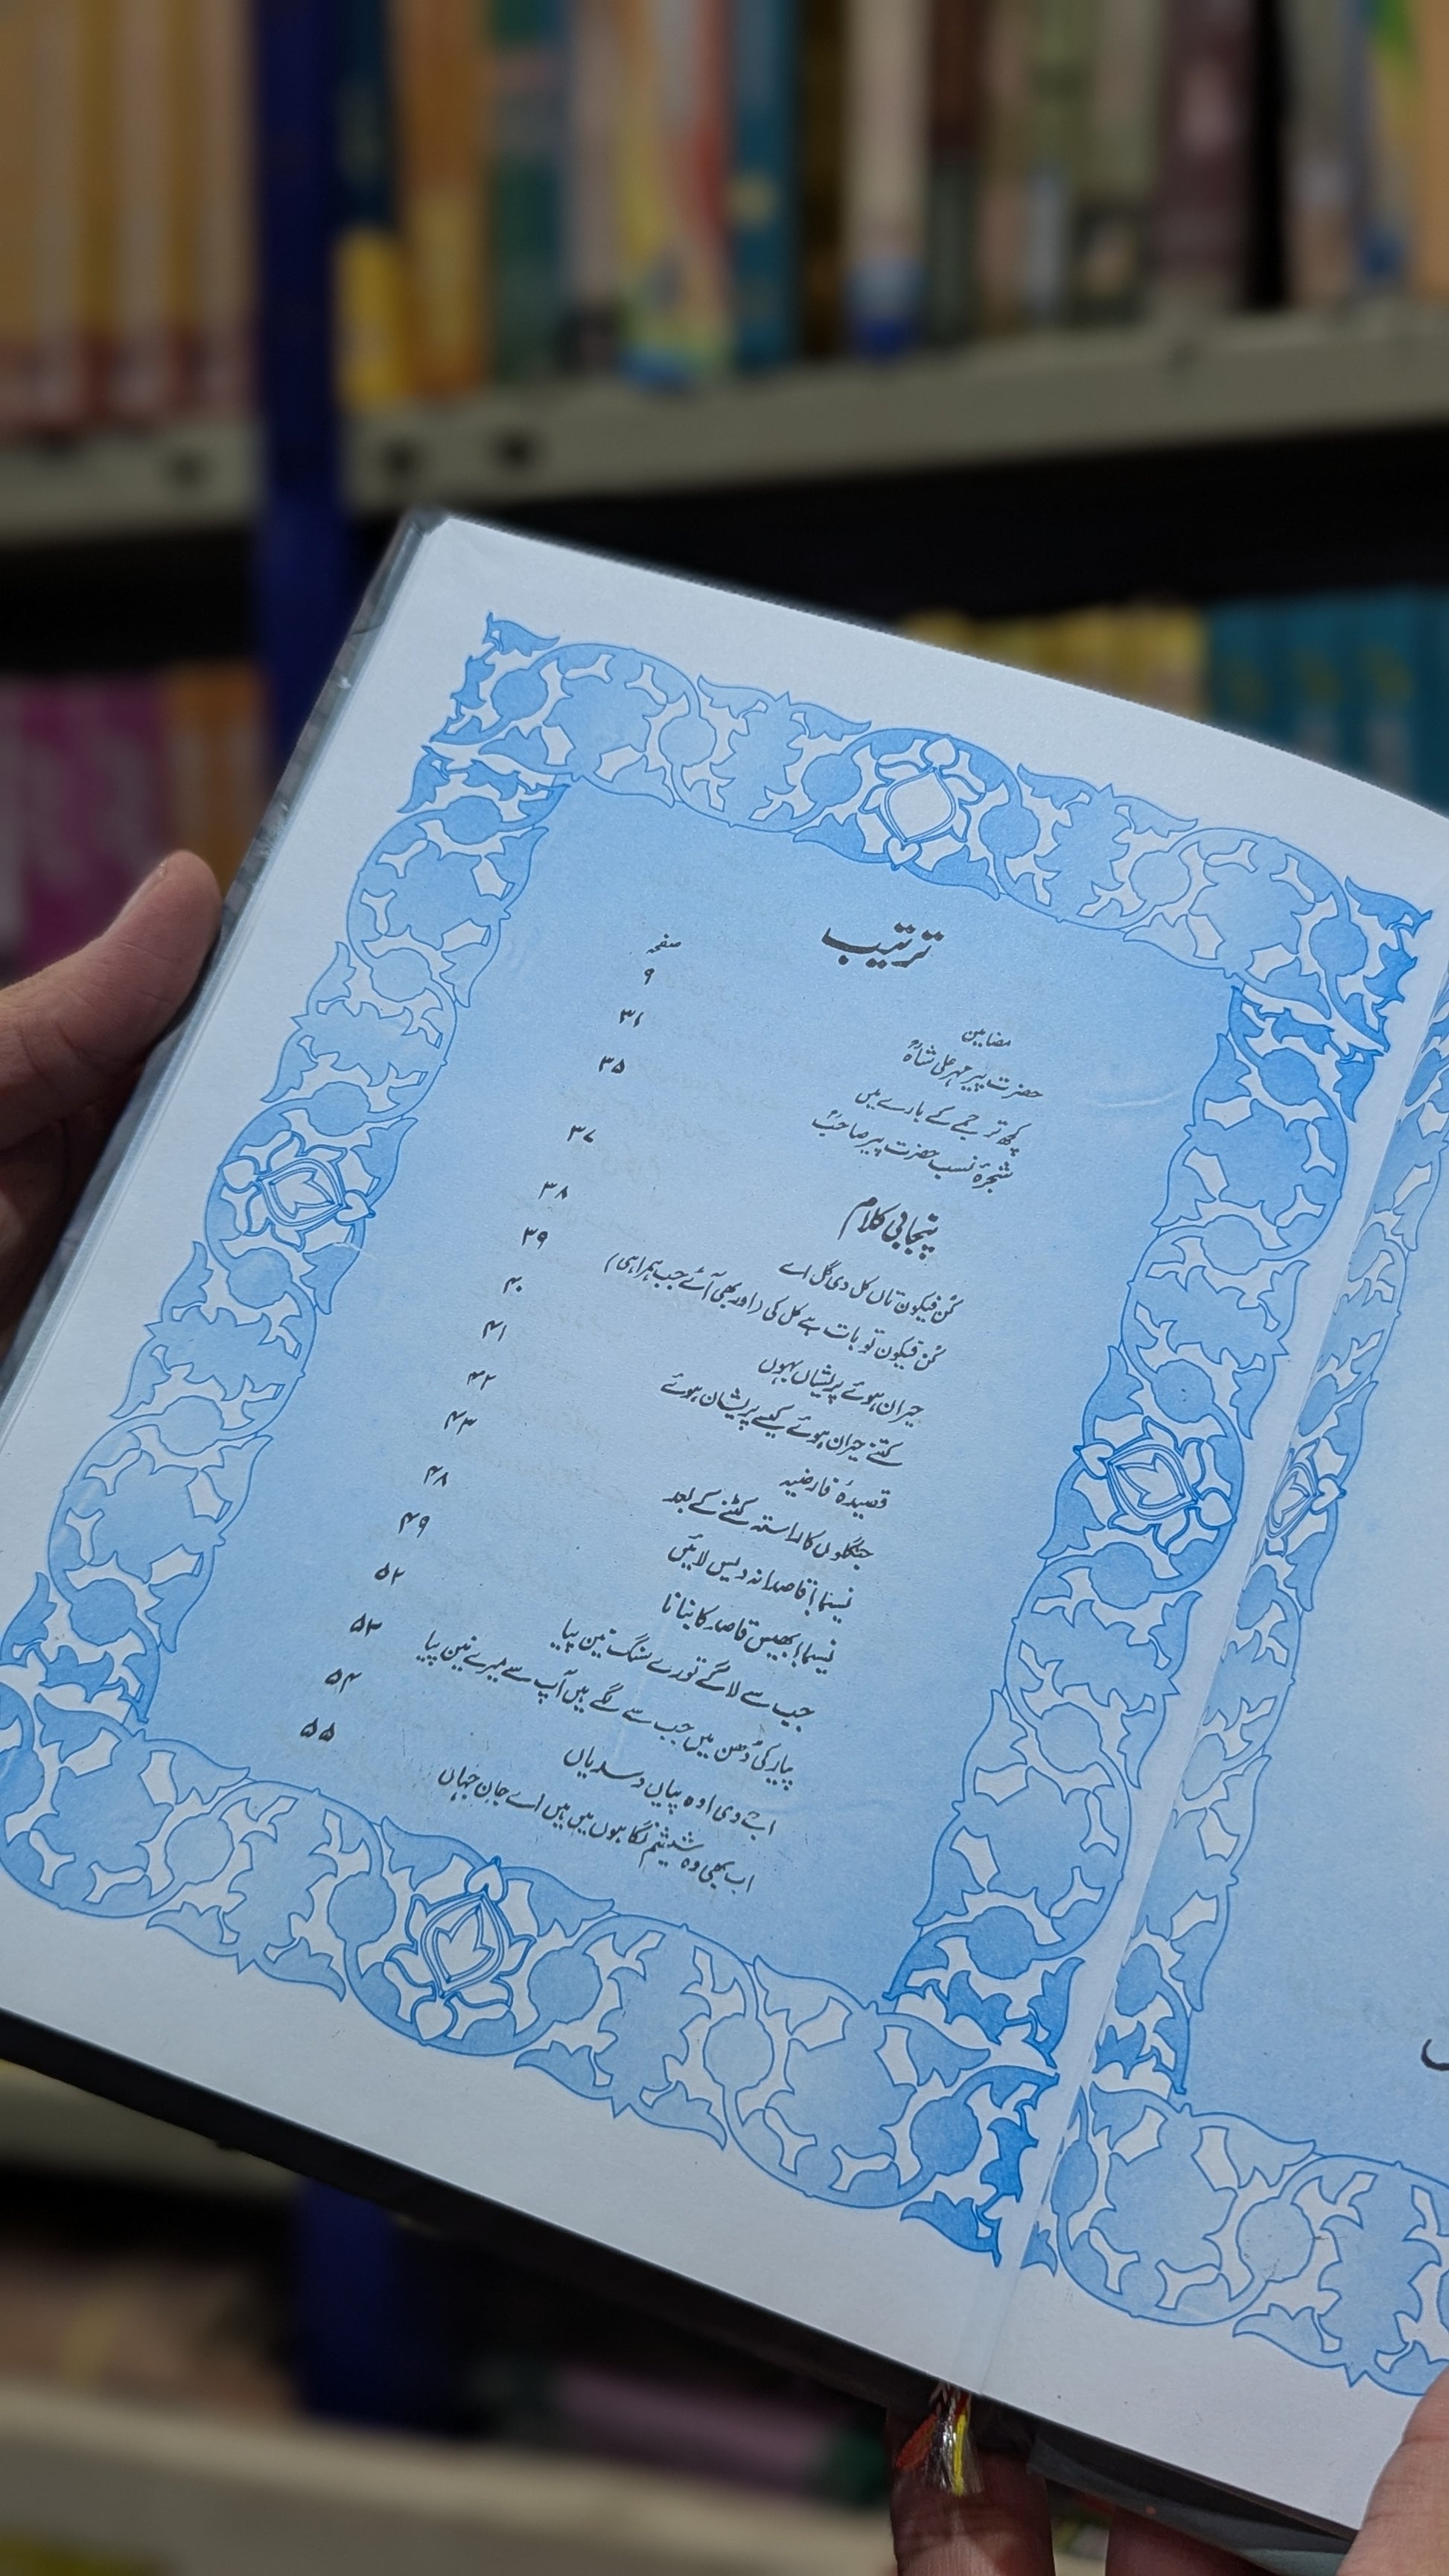 ترتیب
صفحہ
مضامین
۹
حضرت پیر مہر علی شاہؒ
۳۱
کچھ ترجمے کے بارے میں
۳۵
شجرۂ نسب حضرت پیر صاحبؒ
پنجابی کلام
۳۷
کُن فیکون تاں کل دی گل اے
۳۸
کُن فیکون تو بات ہے کل کی (اور بھی آئے جب ہمراہی)
۳۹
حیران ہوئے پریشاں ہوں
۴۰
کتنے حیران ہوئے کیسے پریشان ہوئے
۴۱
قصیدۂ فارضیہ
۴۲
جنگلوں کا راستہ کٹنے کے بعد
۴۳
نسیما! قاصدانہ ویس لائیں
۴۸
نسیما! بھیس قاصد کا بنانا
۴۹
جب سے لاگے تورے سنگ نین پیا
۵۲
پیار کی دُھن میں جب سے لگے ہیں آپ سے میرے نین پیا
۵۳
اجے دی اوہ پیاں دسدیاں
۵۴
اب بھی وہ نگاہوں میں ہیں اے جانِ جہاں
۵۵